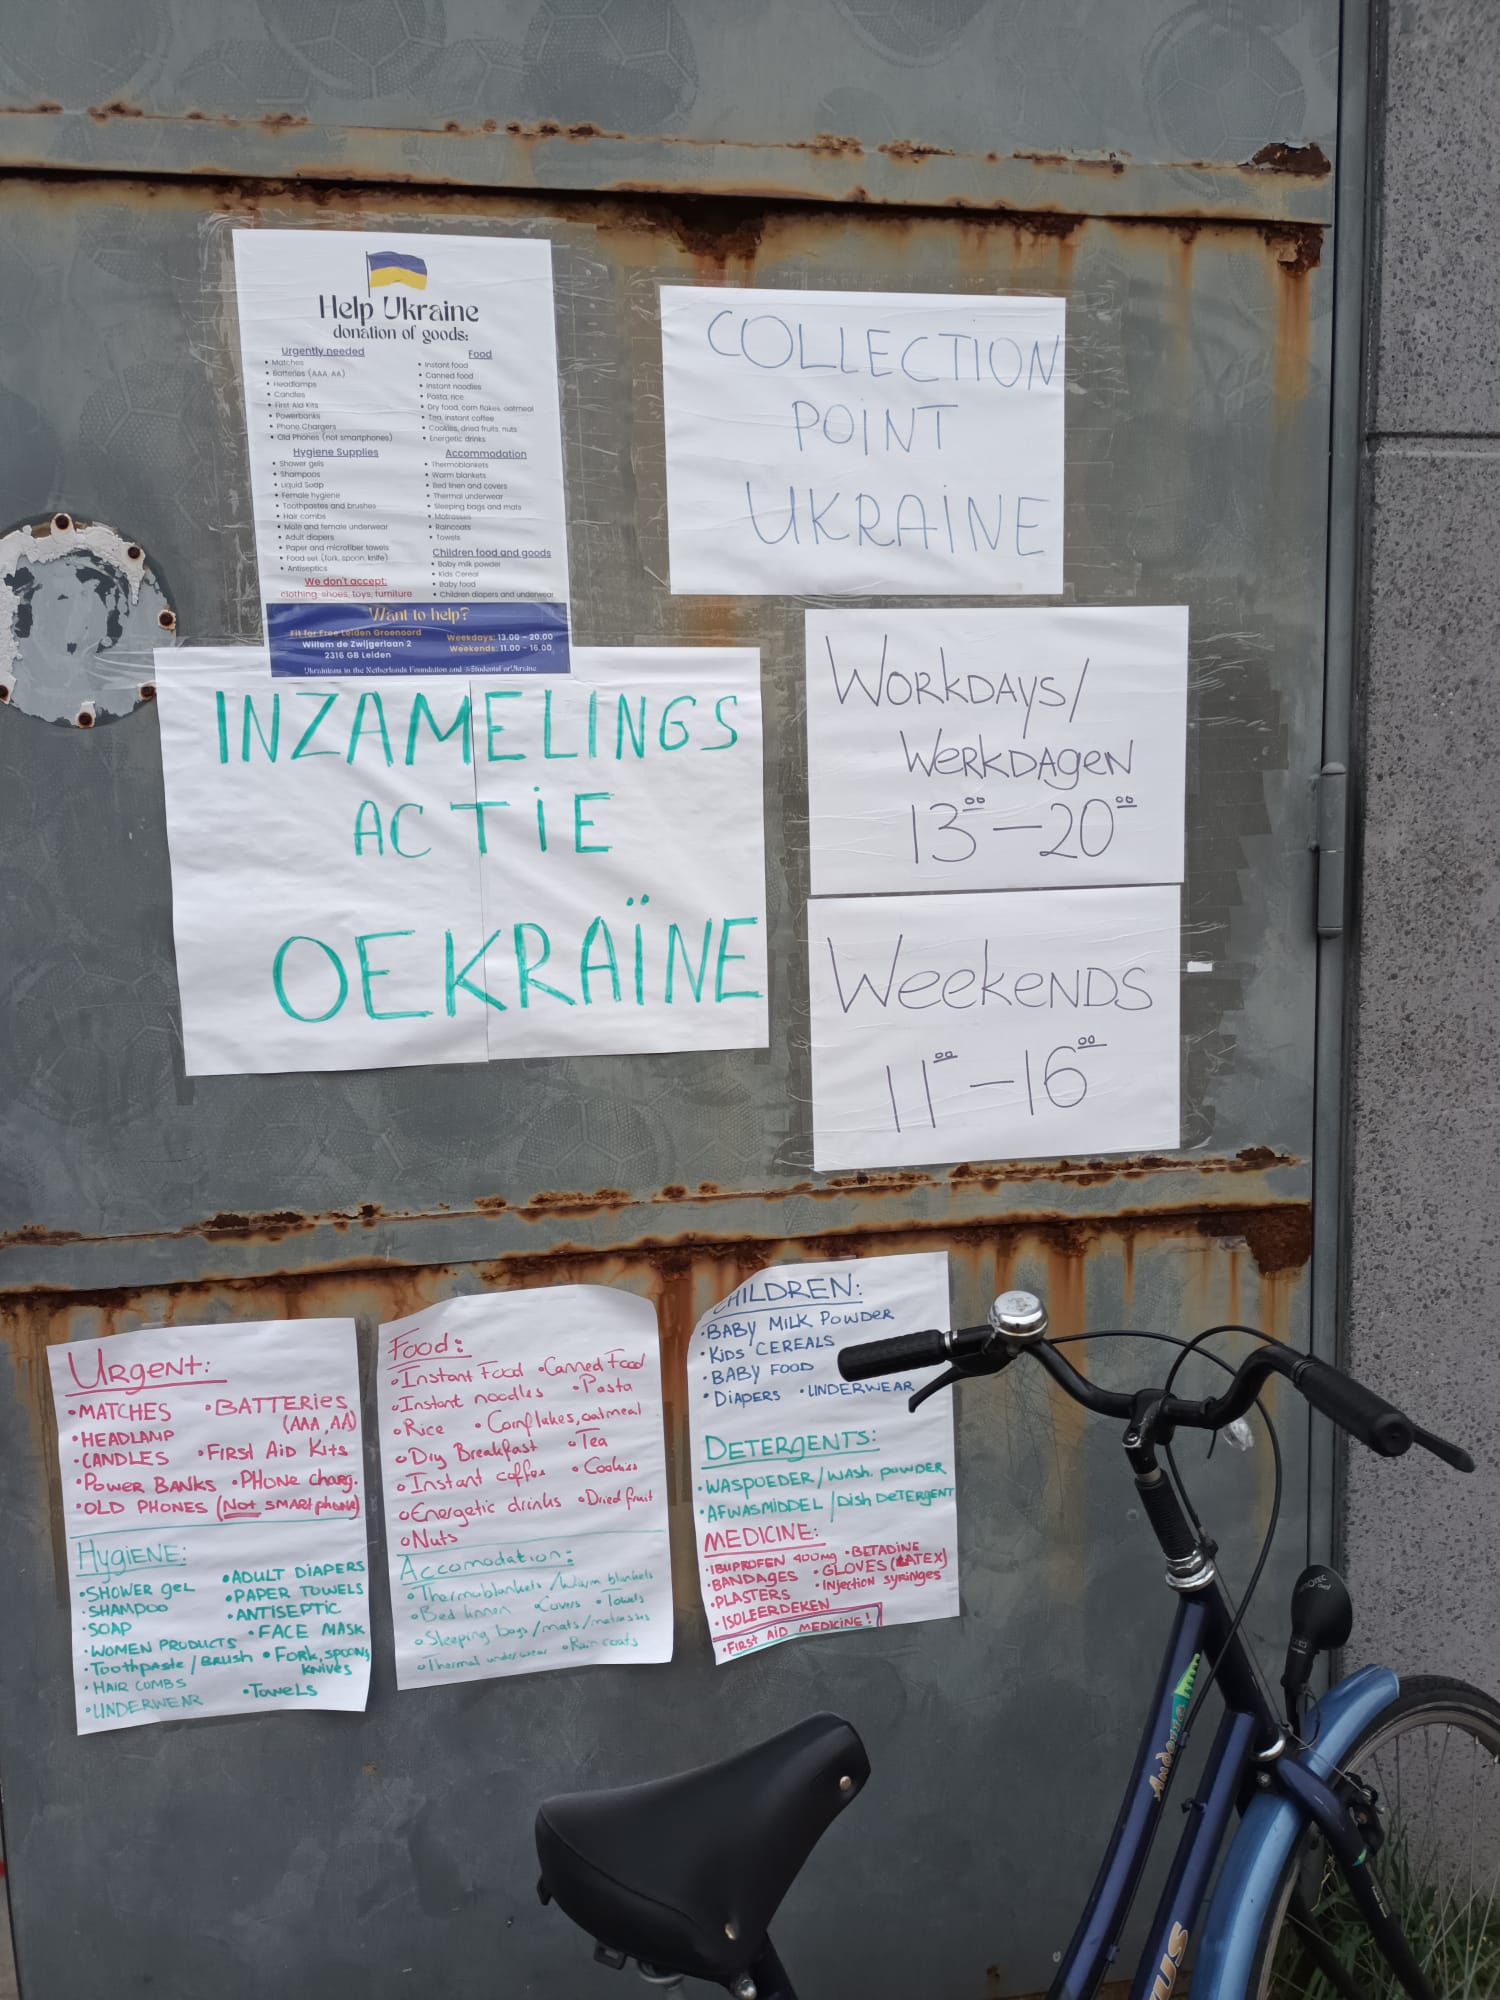 Help Ukraine
donation of goods:
Urgently needed
• Matches
• Batteries (AAA, AA)
• Headlamps
• Candles
• First Aid Kits
• Powerbanks
• Phone Chargers
• Old Phones (not smartphones)
Hygiene Supplies
• Shower gels
• Shampoos
• Liquid Soap
• Female hygiene
• Toothpastes and brushes
• Hair combs
• Male and female underwear
• Adult diapers
• Paper and microfiber towels
• Food set (fork, spoon, knife)
• Antiseptics
We don't accept:
clothing, shoes, toys, furniture
Food
• Instant food
• Canned food
• Instant noodles
• Pasta, rice
• Dry food, corn flakes, oatmeal
• Tea, instant coffee
• Cookies, dried fruits, nuts
• Energetic drinks
Accommodation
• Thermoblankets
• Warm blankets
• Bed linen and covers
• Thermal underwear
• Sleeping bags and mats
• Matrasses
• Raincoats
• Towels
Children food and goods
• Baby milk powder
• Kids Cereal
• Baby food
• Children diapers and underwear
Want to help?
Fit for Free Leiden Groenoord
Willem de Zwijgerlaan 2
2316 GB Leiden
Weekdays: 13.00 - 20.00
Weekends: 11.00 - 16.00
Ukrainians in the Netherlands Foundation and #StudentsForUkraine
COLLECTION
POINT
UKRAINE
INZAMELINGS
ACTIE
OEKRAÏNE
WORKDAYS/
WERKDAGEN
13⁰⁰ – 20⁰⁰
WEEKENDS
11⁰⁰ – 16⁰⁰
URGENT:
• MATCHES • BATTERIES
(AAA, AA)
• HEADLAMP
• CANDLES • FIRST AID KITS
• POWER BANKS • PHONE CHARG.
• OLD PHONES (NOT SMARTPHONE)
HYGIENE:
• SHOWER GEL
• SHAMPOO
• SOAP
• WOMEN PRODUCTS
• TOOTHPASTE / BRUSH
• HAIR COMBS
• UNDERWEAR
• ADULT DIAPERS
• PAPER TOWELS
• ANTISEPTIC
• FACE MASK
• FORK, SPOONS,
KNIVES
• TOWELS
Food:
• Instant Food • Canned Food
• Instant noodles • Pasta
• Rice • Cornflakes, oatmeal
• Dry Breakfast • Tea
• Instant coffee • Cookies
• Energetic drinks • Dried fruit
• Nuts
Accomodation:
• Thermoblankets / Warm blankets
• Bed linnen • Covers • Towels
• Sleeping bags / mats / matrassis
• Thermal underwear • Rain coats
CHILDREN:
• BABY MILK POWDER
• KIDS CEREALS
• BABY FOOD
• DIAPERS • UNDERWEAR
DETERGENTS:
• WASPOEDER / WASH. POWDER
• AFWASMIDDEL / DISH DETERGENT
MEDICINE:
• IBUPROFEN 400mg • BETADINE
• BANDAGES • GLOVES (LATEX)
• PLASTERS • INJECTION SYRINGES
• ISOLEERDEKEN
• FIRST AID MEDICINE!